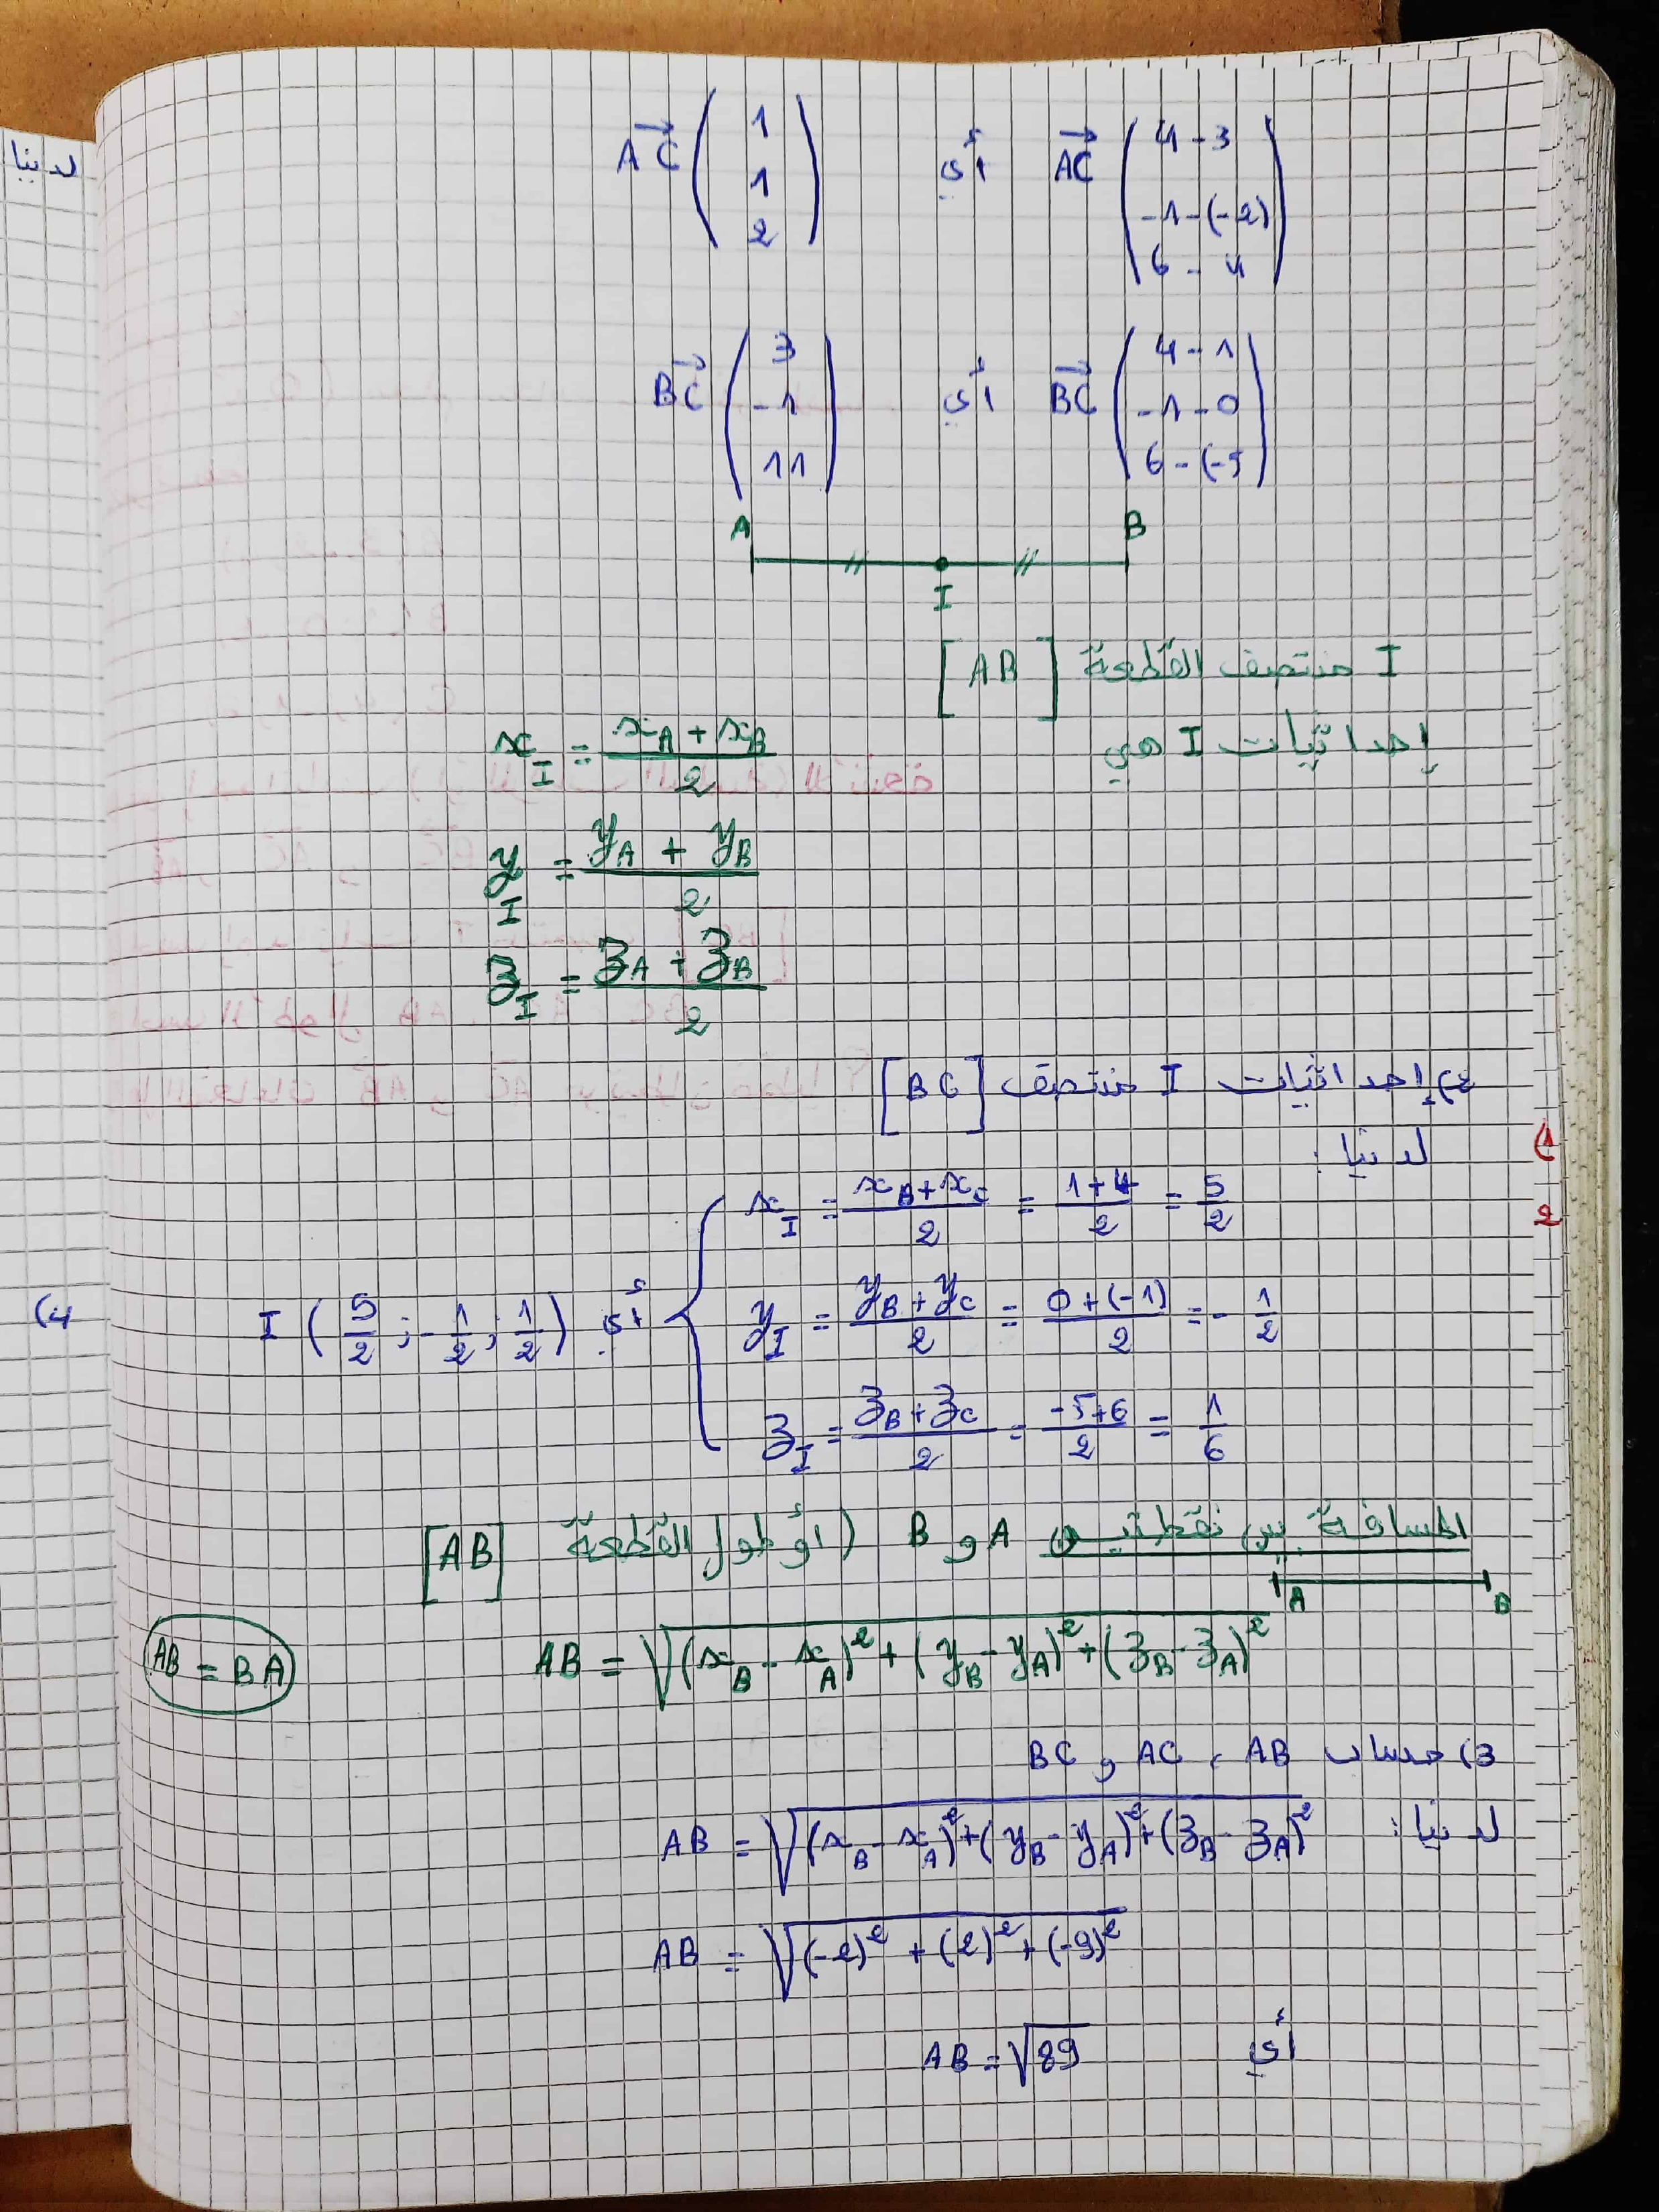 لدينا
AC→ ( 4-3 ; -1-(-2) ; 6-4 ) أي AC→ ( 1 ; 1 ; 2 )
BC→ ( 4-1 ; -1-0 ; 6-(-5 ) أي BC→ ( 3 ; -1 ; 11 )
A B
I
I منتصف القطعة [AB]
إحداثيات I هي x_I = (x_A + x_B)/2
y_I = (y_A + y_B)/2
z_I = (z_A + z_B)/2
2) إحداثيات I منتصف [BC]
لدينا :
x_I = (x_B + x_C)/2 = (1+4)/2 = 5/2
y_I = (y_B + y_C)/2 = (0+(-1))/2 = -1/2
z_I = (z_B + z_C)/2 = (-5+6)/2 = 1/6
أي I ( 5/2 ; -1/2 ; 1/2 )
4)
1)
2
المسافة بين نقطتين A و B (أو طول القطعة [AB]
A B
AB = √((x_B - x_A)² + (y_B - y_A)² + (z_B - z_A)²)
AB = BA
3) حساب AB ، AC و BC
لدينا : AB = √((x_B - x_A)² + (y_B - y_A)² + (z_B - z_A)²)
AB = √((-2)² + (2)² + (-9)²)
أي AB = √89